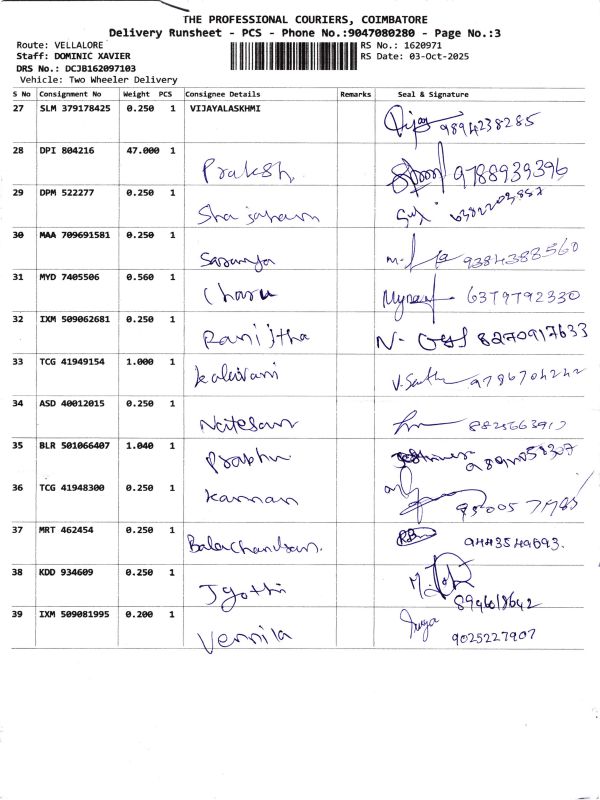 THE PROFESSIONAL COURIERS, COIMBATORE
Delivery Runsheet - PCS - Phone No.:9047080280 - Page No.:3
Route: VELLALORE RS No.: 1620971
Staff: DOMINIC XAVIER RS Date: 03-Oct-2025
DRS No.: DCJB162097103
Vehicle: Two Wheeler Delivery
S No Consignment No Weight PCS Consignee Details Remarks Seal & Signature
27 SLM 379178425 0.250 1 VIJAYALASKHMI Vijay 9894238285
28 DPI 804216 47.000 1 Prakesh 9788939396
29 DPM 522277 0.250 1 Sha jahan
30 MAA 709691581 0.250 1 Saranya 9384388560
31 MYD 7405506 0.560 1 Charu 6379792330
32 IXM 509062681 0.250 1 Ranjitha N. 8270917633
33 TCG 41949154 1.000 1 kalaivani V.Sath 9786704242
34 ASD 40012015 0.250 1 Natesan
35 BLR 501066407 1.040 1 Prabhu
36 TCG 41948300 0.250 1 Kannan
37 MRT 462454 0.250 1 Balachandran. 9443549693.
38 KDD 934609 0.250 1 Jyothi
39 IXM 509081995 0.200 1 Vennila 9025227907